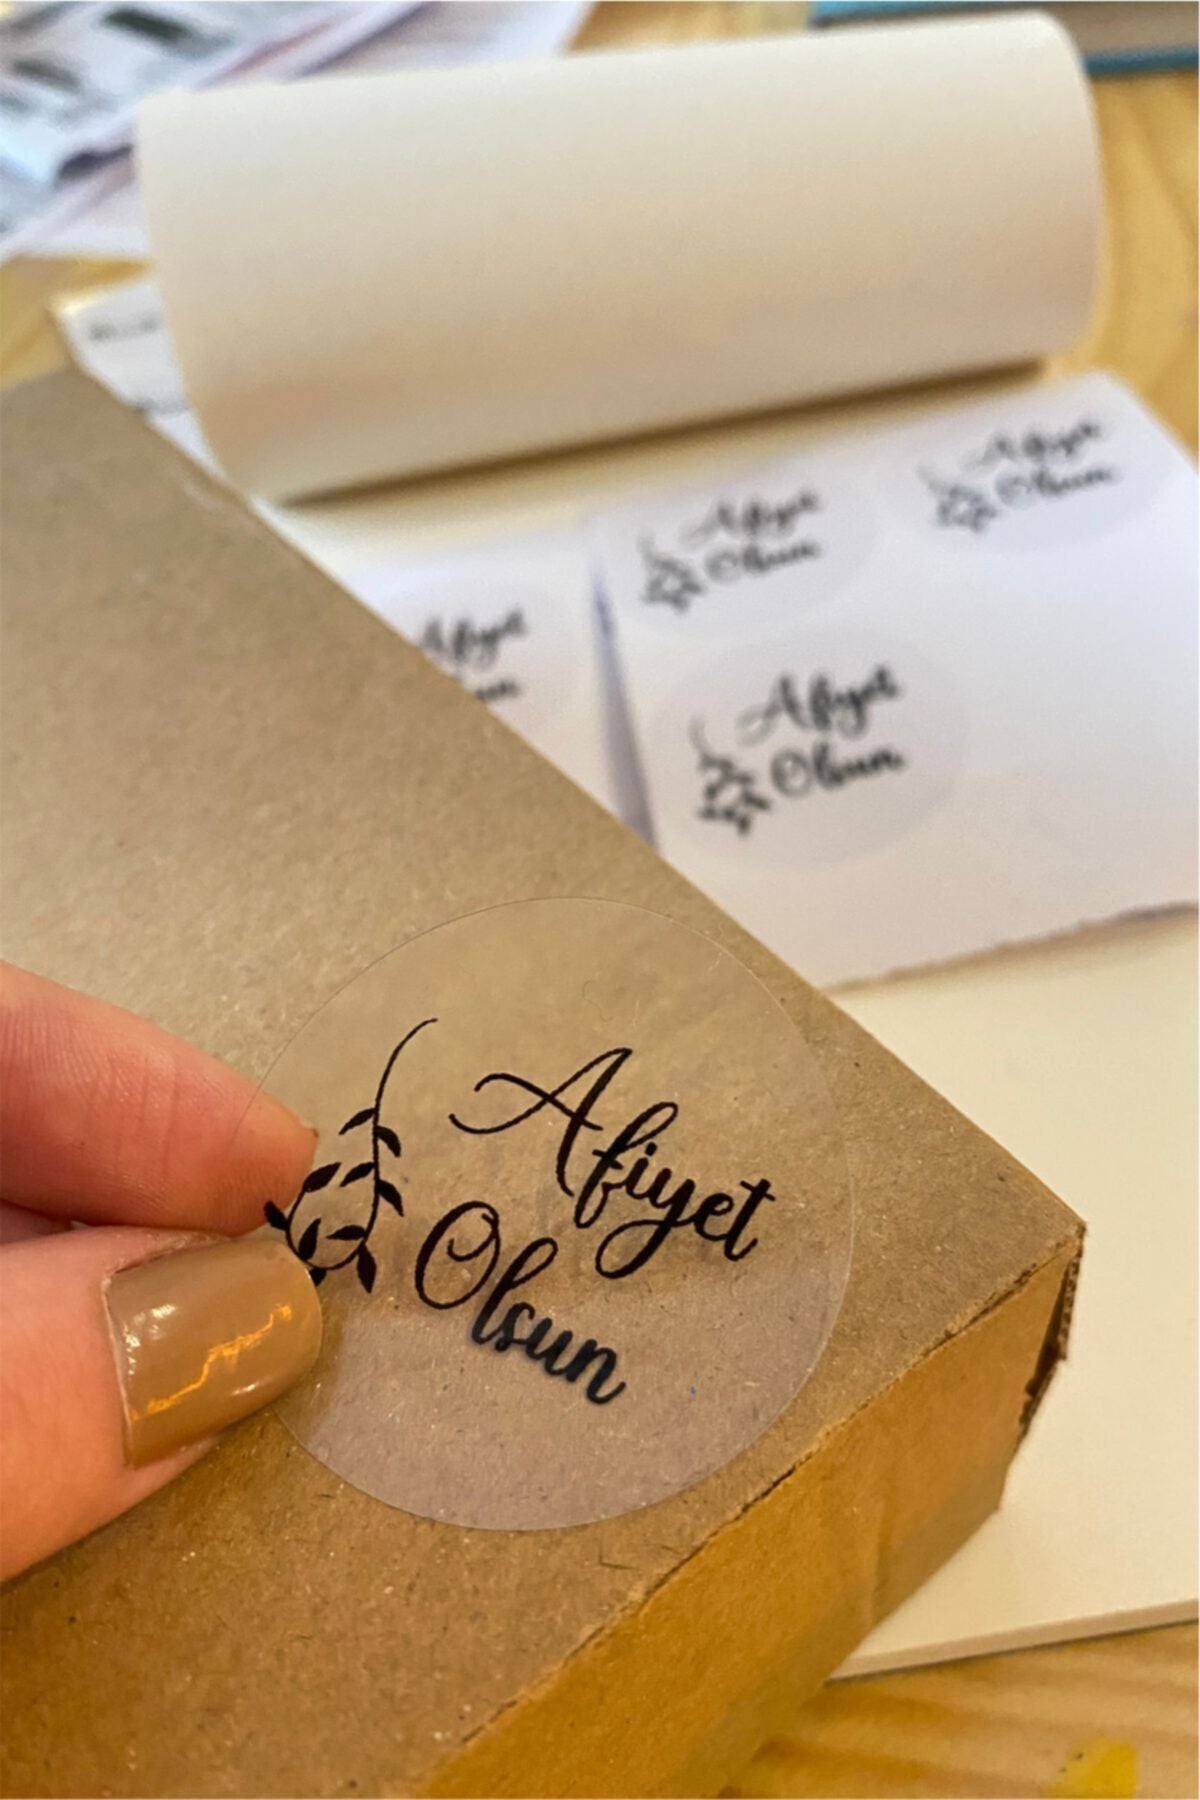 Afiyet
Olsun
Afiyet
Olsun
Afiyet
Afiyet
Olsun
Afiyet
Olsun